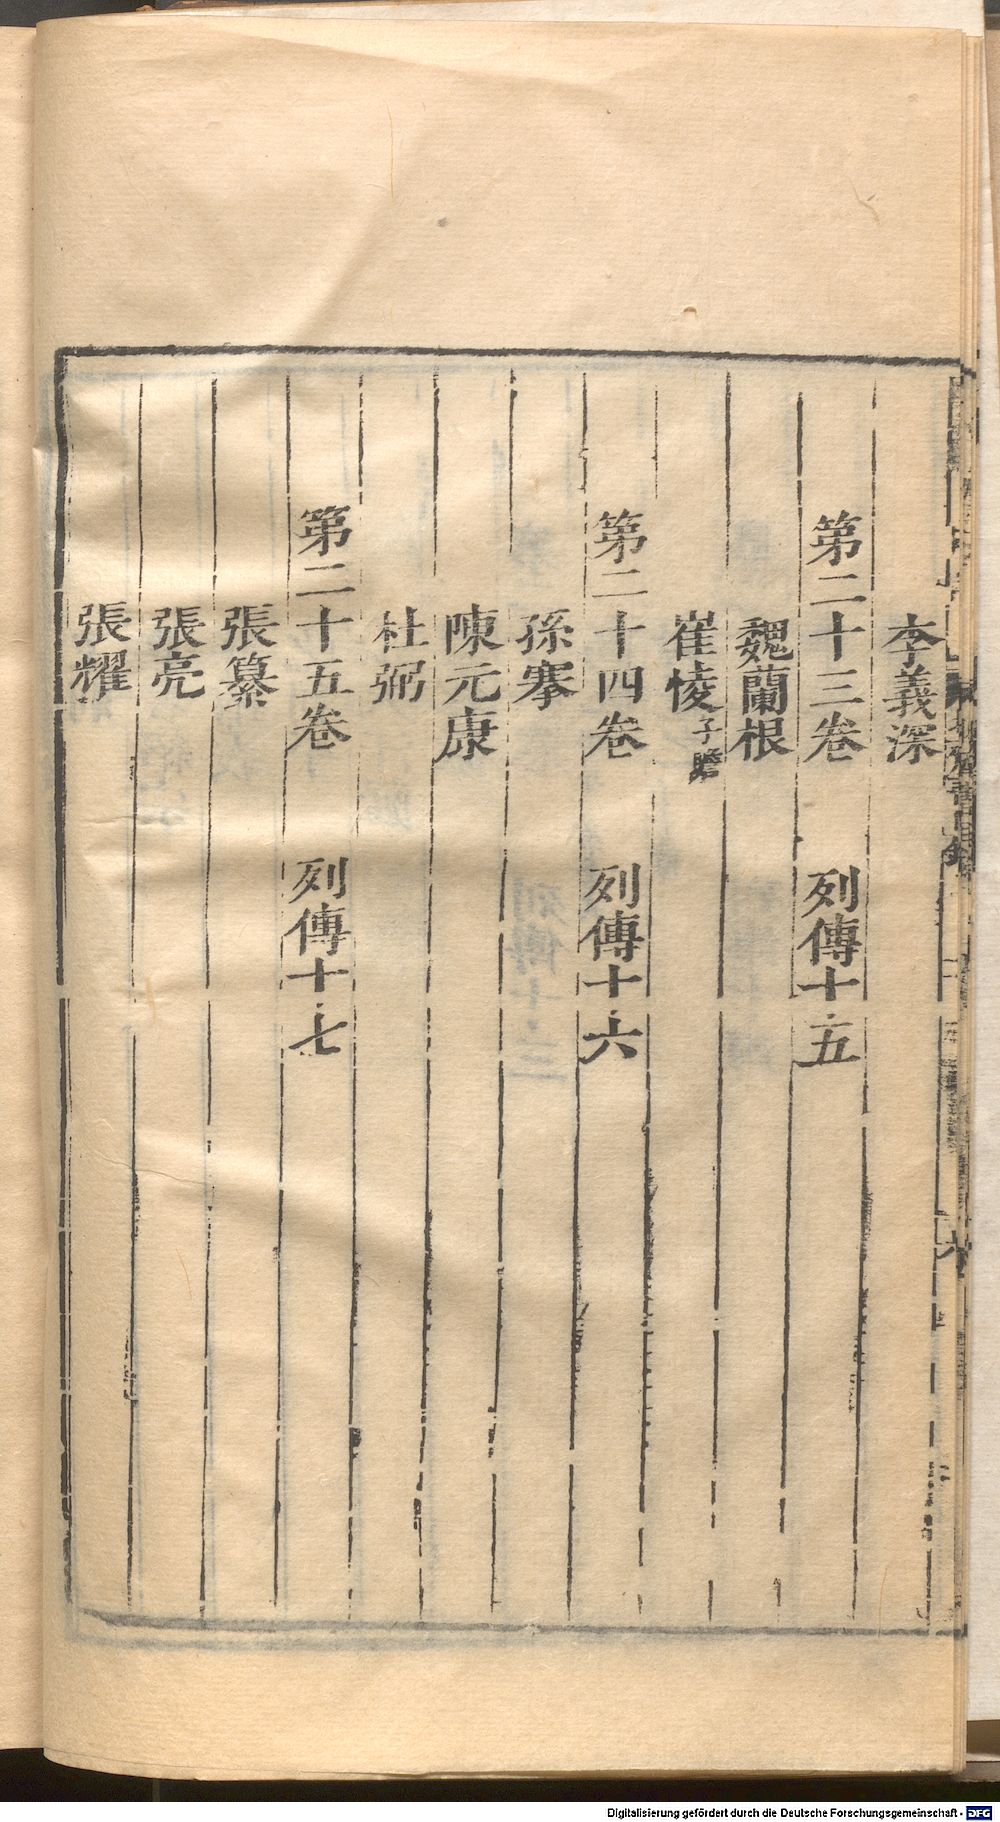 李義深
第二十三卷 列傳十五
魏蘭根
崔㥄子瞻
第二十四卷 列傳十六
孫搴
陳元康
杜弼
第二十五卷 列傳十七
張纂
張亮
張耀
Digitalisierung gefördert durch die Deutsche Forschungsgemeinschaft - DFG